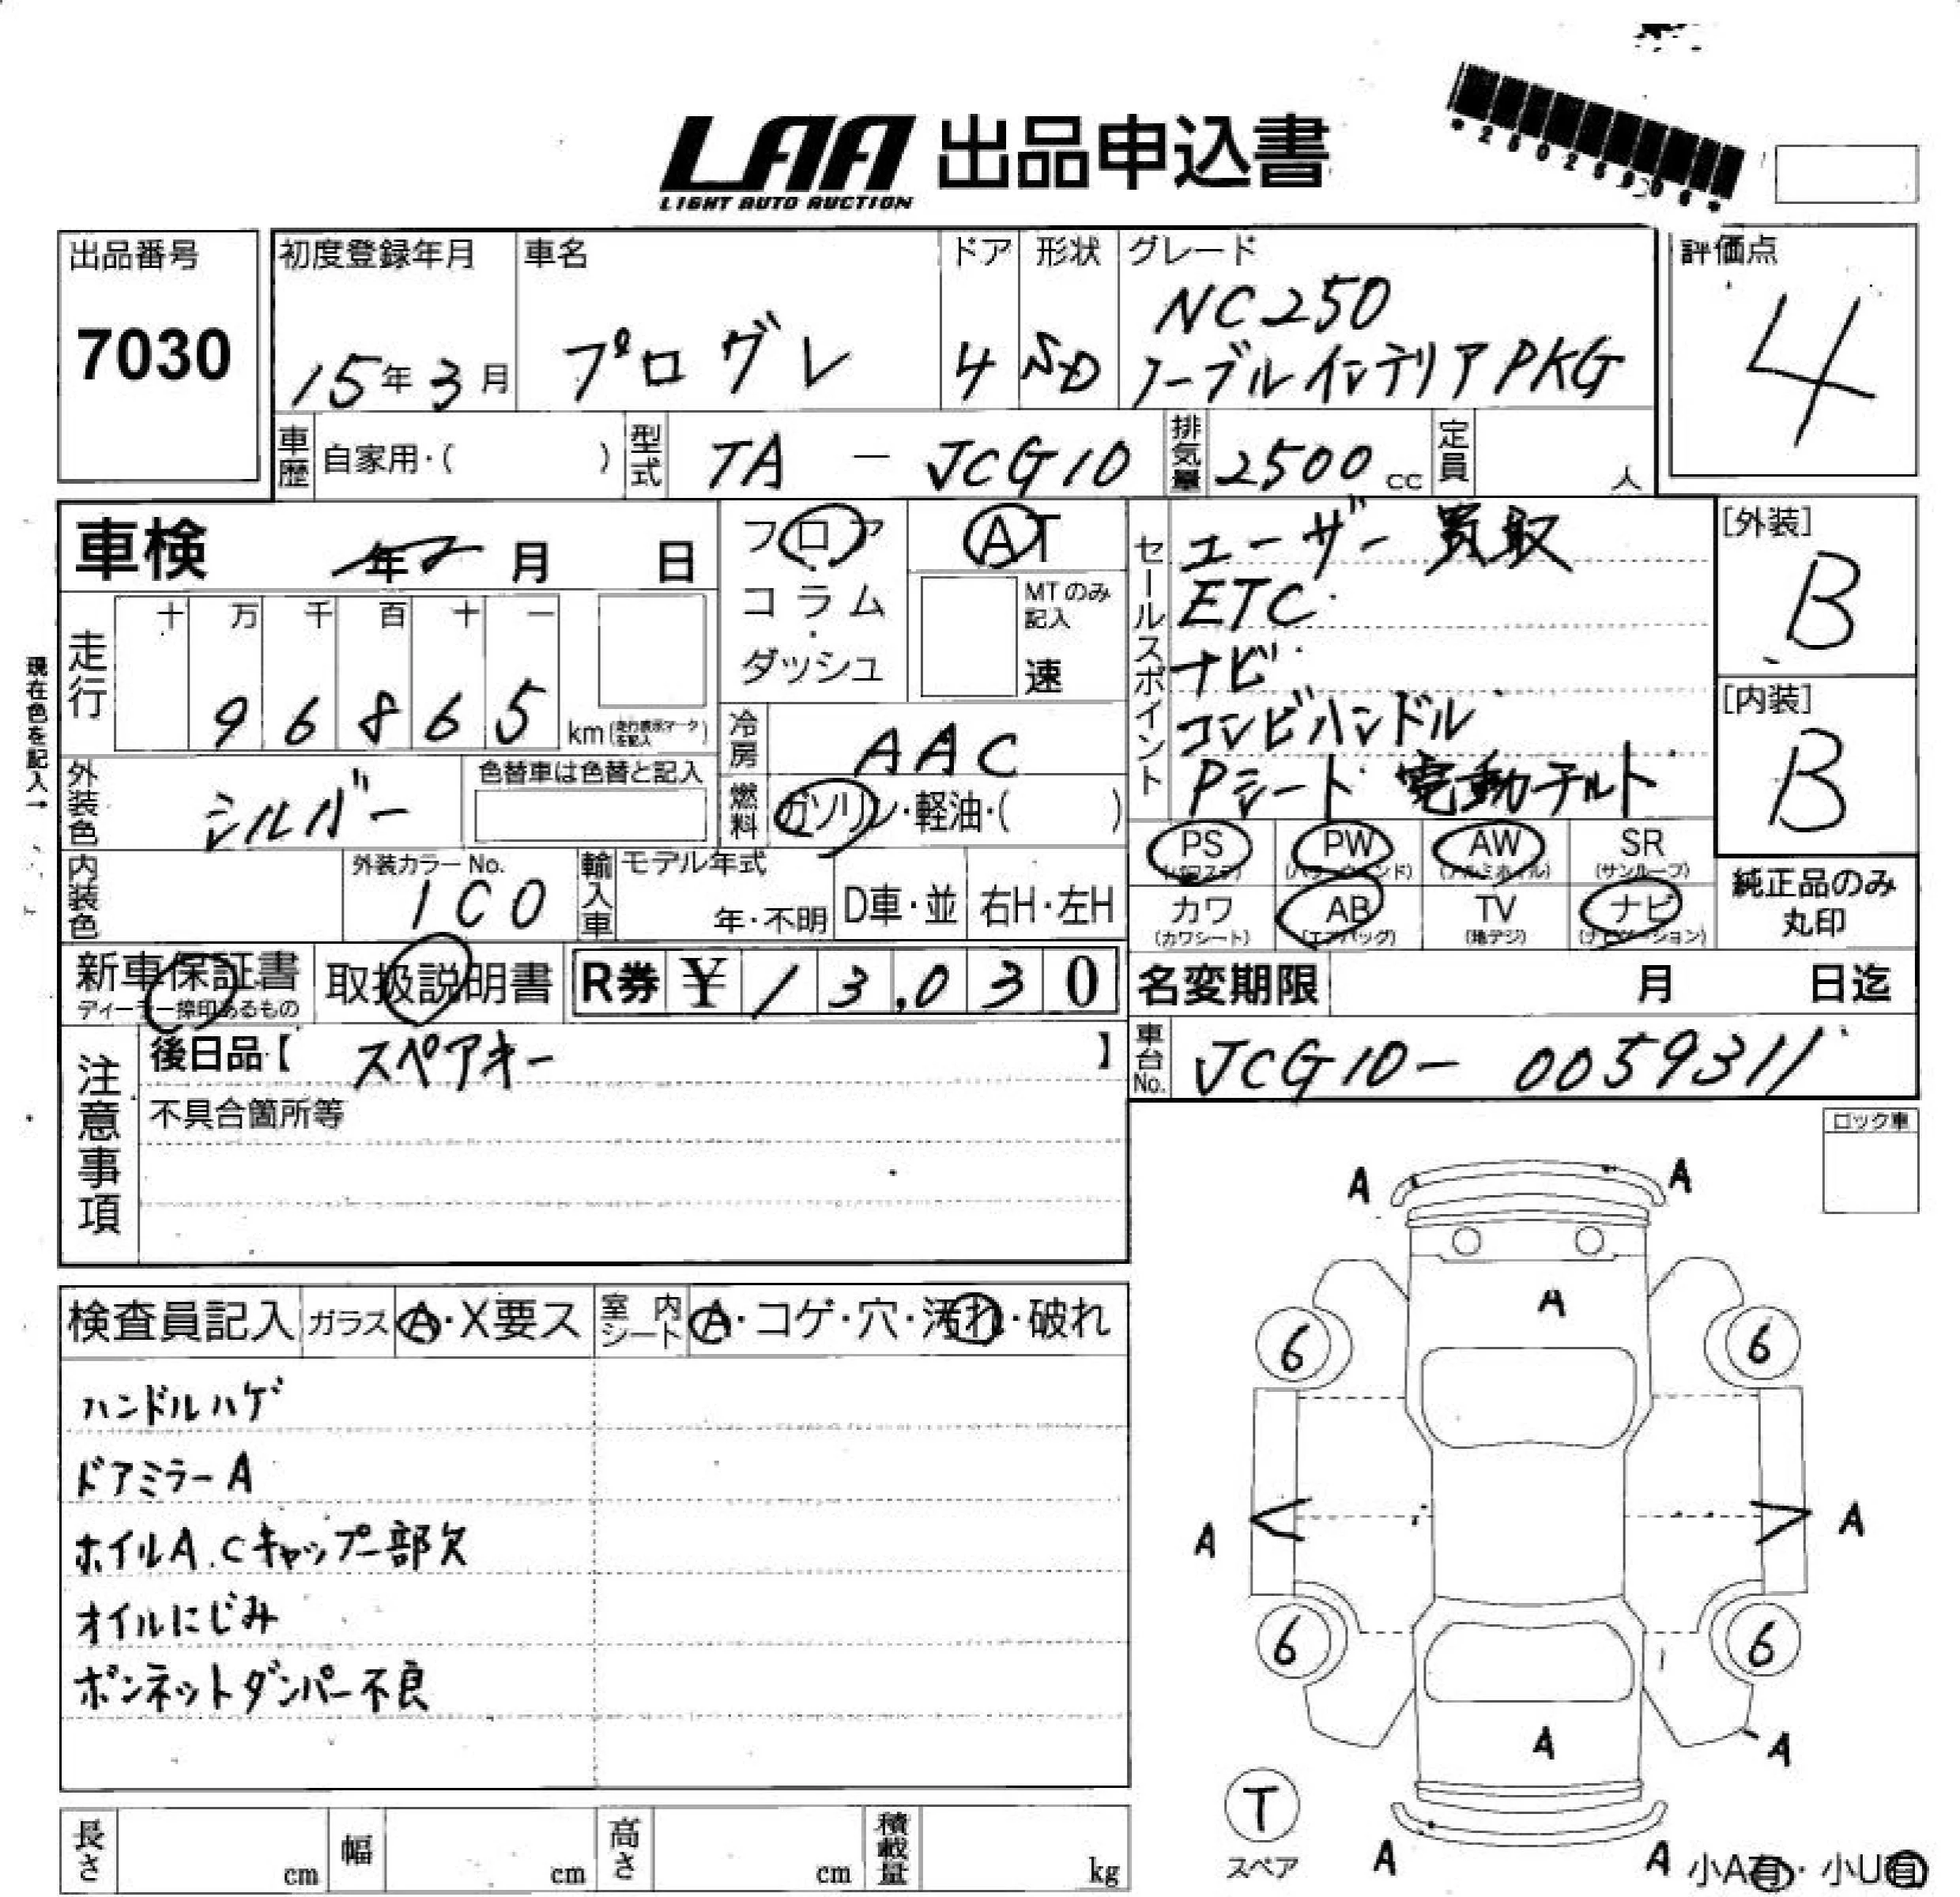 LAA 出品申込書
LIGHT AUTO AUCTION
出品番号
7030
初度登録年月
15年3月
車名
プログレ
ドア
4
形状
SD
グレード
NC250
ノーブルインテリアPKG
評価点
4
車歴
自家用・( )
型式
TA - JCG10
排気量
2500 cc
定員
人
車検
年 月 日
フロア
コラム
・
ダッシュ
AT
MTのみ
記入
速
セールスポイント
ユーザー買取
ETC
ナビ
コンビハンドル
Pシート 電動チルト
[外装]
B
[内装]
B
現在色を記入→
走行
十 万 千 百 十 一
9 6 8 6 5 km
冷房
AAC
外装色
シルバー
色替車は色替と記入
燃料
ガソリン・軽油・( )
内装色
外装カラーNo.
1C0
輸入車
モデル年式
年・不明
D車・並
右H・左H
PS PW AW SR
(パワステ) (パワーウインド) (アルミホイル) (サンルーフ)
カワ AB TV ナビ
(カワシート) (エアバッグ) (地デジ) (ナビゲーション)
純正品のみ
丸印
新車保証書
ディーラー捺印あるもの
取扱説明書
R券 ¥ 13,030
名変期限 月 日迄
注意事項
後日品【 スペアキー 】
不具合箇所等
車台No.
JCG10- 0059311
ロック車
検査員記入
ガラス
A・X要ス
室内シート
A・コゲ・穴・汚れ・破れ
ハンドルハゲ
ドアミラーA
ホイルA.Cキャップ一部欠
オイルにじみ
ボンネットダンパー不良
A A
A
6 6
A A
6 6
A A
T
スペア
A A
小A有・小U有
長さ cm
幅 cm
高さ cm
積載量 kg